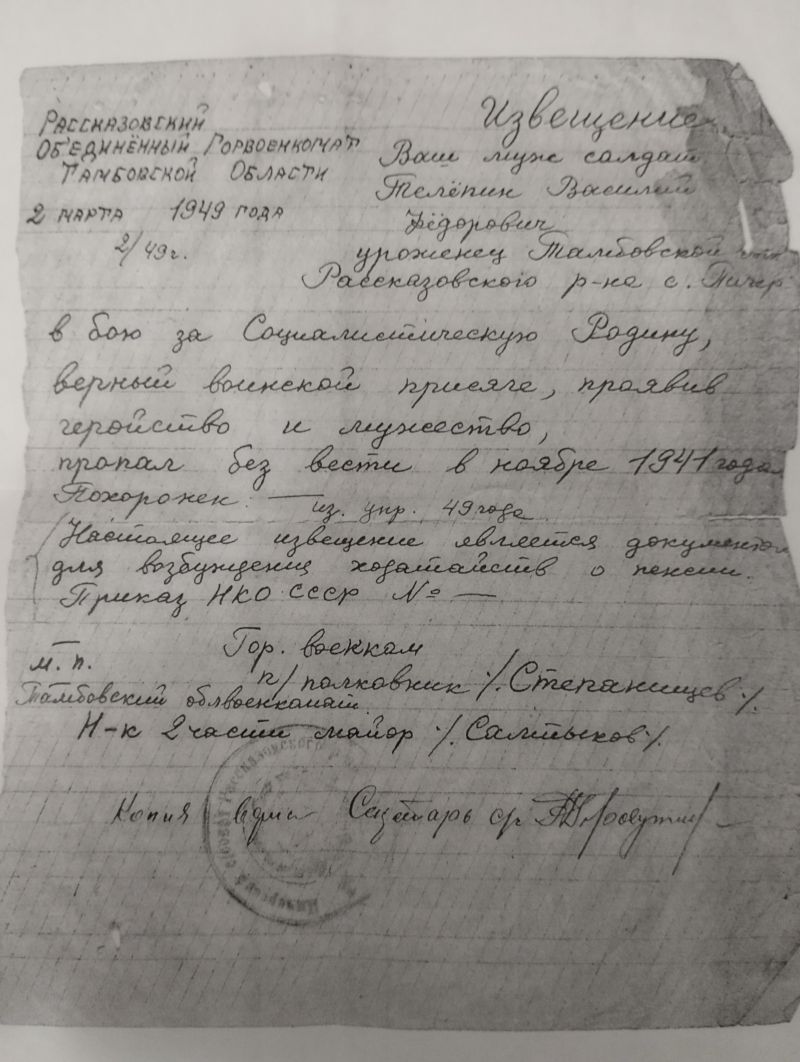 Рассказовский
Об'единённый Горвоенкомат
Тамбовской Области
2 марта 1949 года
2/49г.
Извещение
Ваш муж солдат
Телёпин Василий
Фёдорович
уроженец Тамбовской
Рассказовского р-на с. Пичер
в бою за Социалистическую Родину,
верный воинской присяге, проявив
геройство и мужество,
пропал без вести в ноябре 1941 года
Похоронен: — из. упр. 49 года
Настоящее извещение является документом
для возбуждения ходатайств о пенсии.
Приказ НКО СССР № —
Гор. военком
м. п.
п/полковник /. Степанищев /.
Тамбовский облвоенкомат
Н-к 2 части майор /. Салтыков /.
Копия верна Секретарь с/с